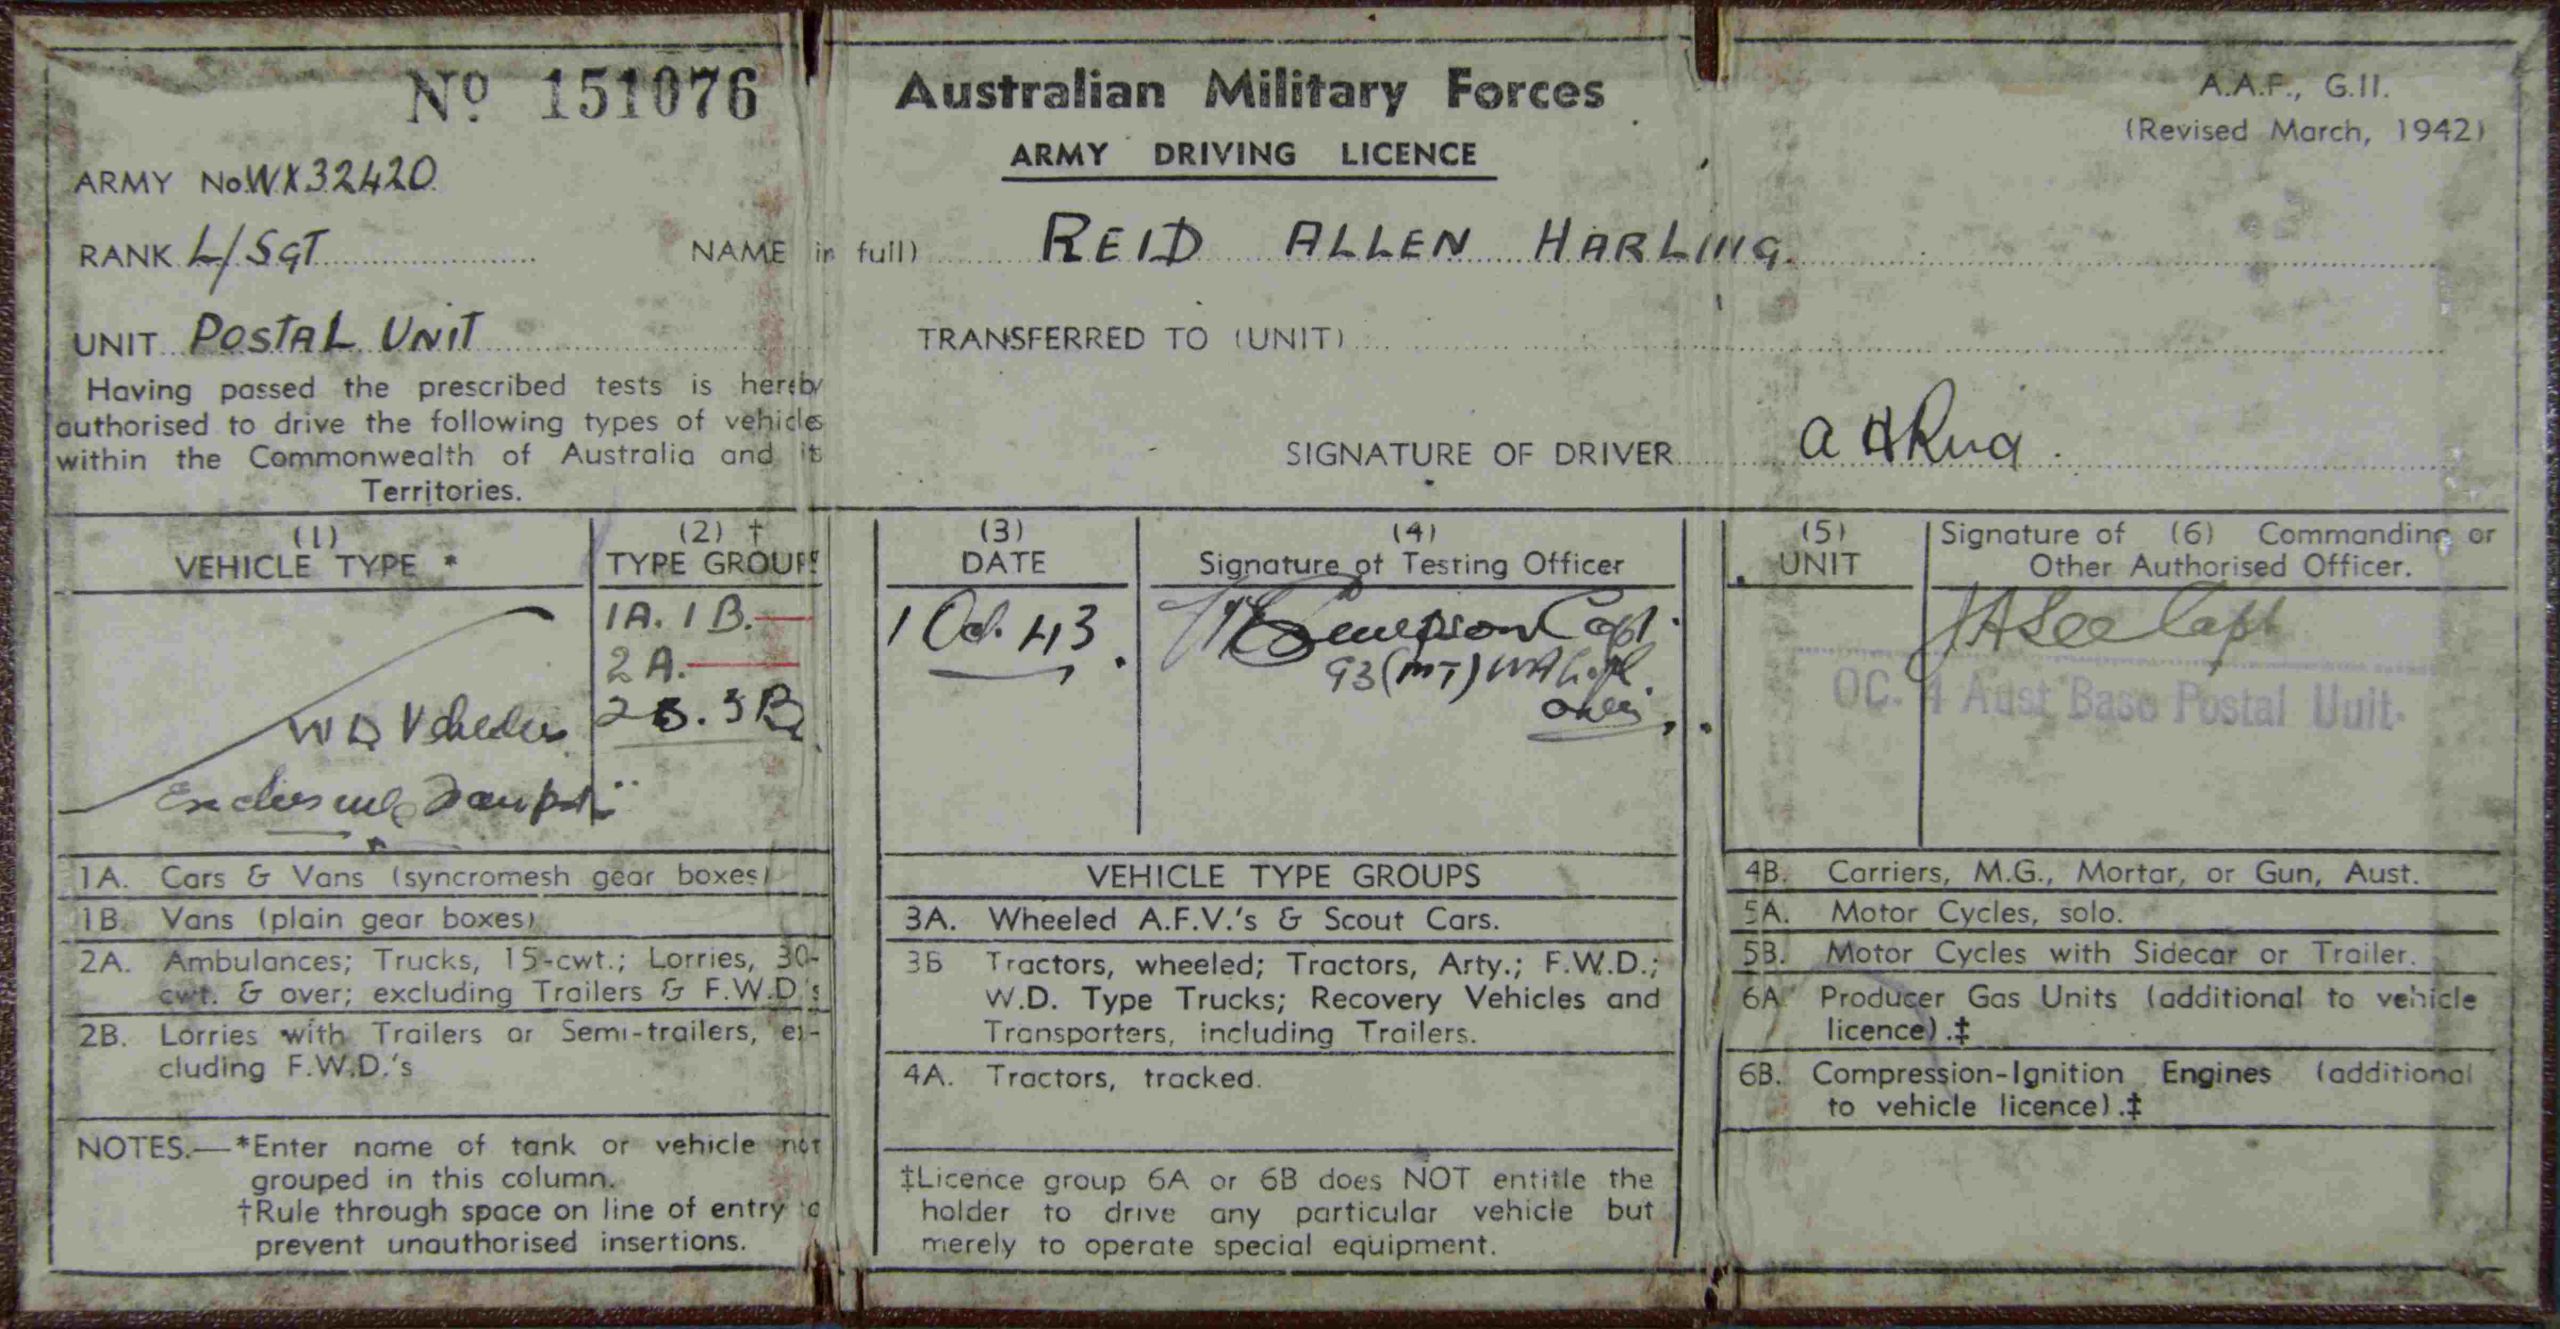 Nº 151076
Australian Military Forces
A.A.F., G.II.
(Revised March, 1942)
ARMY DRIVING LICENCE
ARMY No. WX32420.
RANK L/SGT NAME in full) REID ALLEN HARLING.
UNIT POSTAL UNIT TRANSFERRED TO (UNIT)
Having passed the prescribed tests is hereby
authorised to drive the following types of vehicles
within the Commonwealth of Australia and its
Territories.
SIGNATURE OF DRIVER A H Reid.
(1)
VEHICLE TYPE *
(2) †
TYPE GROUP
(3)
DATE
(4)
Signature of Testing Officer
(5)
UNIT
Signature of (6) Commanding or
Other Authorised Officer.
WD Vehicles
1A. 1B.
2A.
2B. 3B
1 Oct. 43
Capt.
93 (MT)
only.
J A Lee Capt
OC. 4 Aust Base Postal Unit.
1A. Cars & Vans (syncromesh gear boxes)
1B. Vans (plain gear boxes)
2A. Ambulances; Trucks, 15-cwt.; Lorries, 30-
cwt. & over; excluding Trailers & F.W.D.'s
2B. Lorries with Trailers or Semi-trailers, ex-
cluding F.W.D.'s
NOTES.—*Enter name of tank or vehicle not
grouped in this column.
†Rule through space on line of entry to
prevent unauthorised insertions.
VEHICLE TYPE GROUPS
3A. Wheeled A.F.V.'s & Scout Cars.
3B Tractors, wheeled; Tractors, Arty.; F.W.D.;
W.D. Type Trucks; Recovery Vehicles and
Transporters, including Trailers.
4A. Tractors, tracked.
‡Licence group 6A or 6B does NOT entitle the
holder to drive any particular vehicle but
merely to operate special equipment.
4B. Carriers, M.G., Mortar, or Gun, Aust.
5A. Motor Cycles, solo.
5B. Motor Cycles with Sidecar or Trailer.
6A Producer Gas Units (additional to vehicle
licence).‡
6B. Compression-Ignition Engines (additional
to vehicle licence).‡